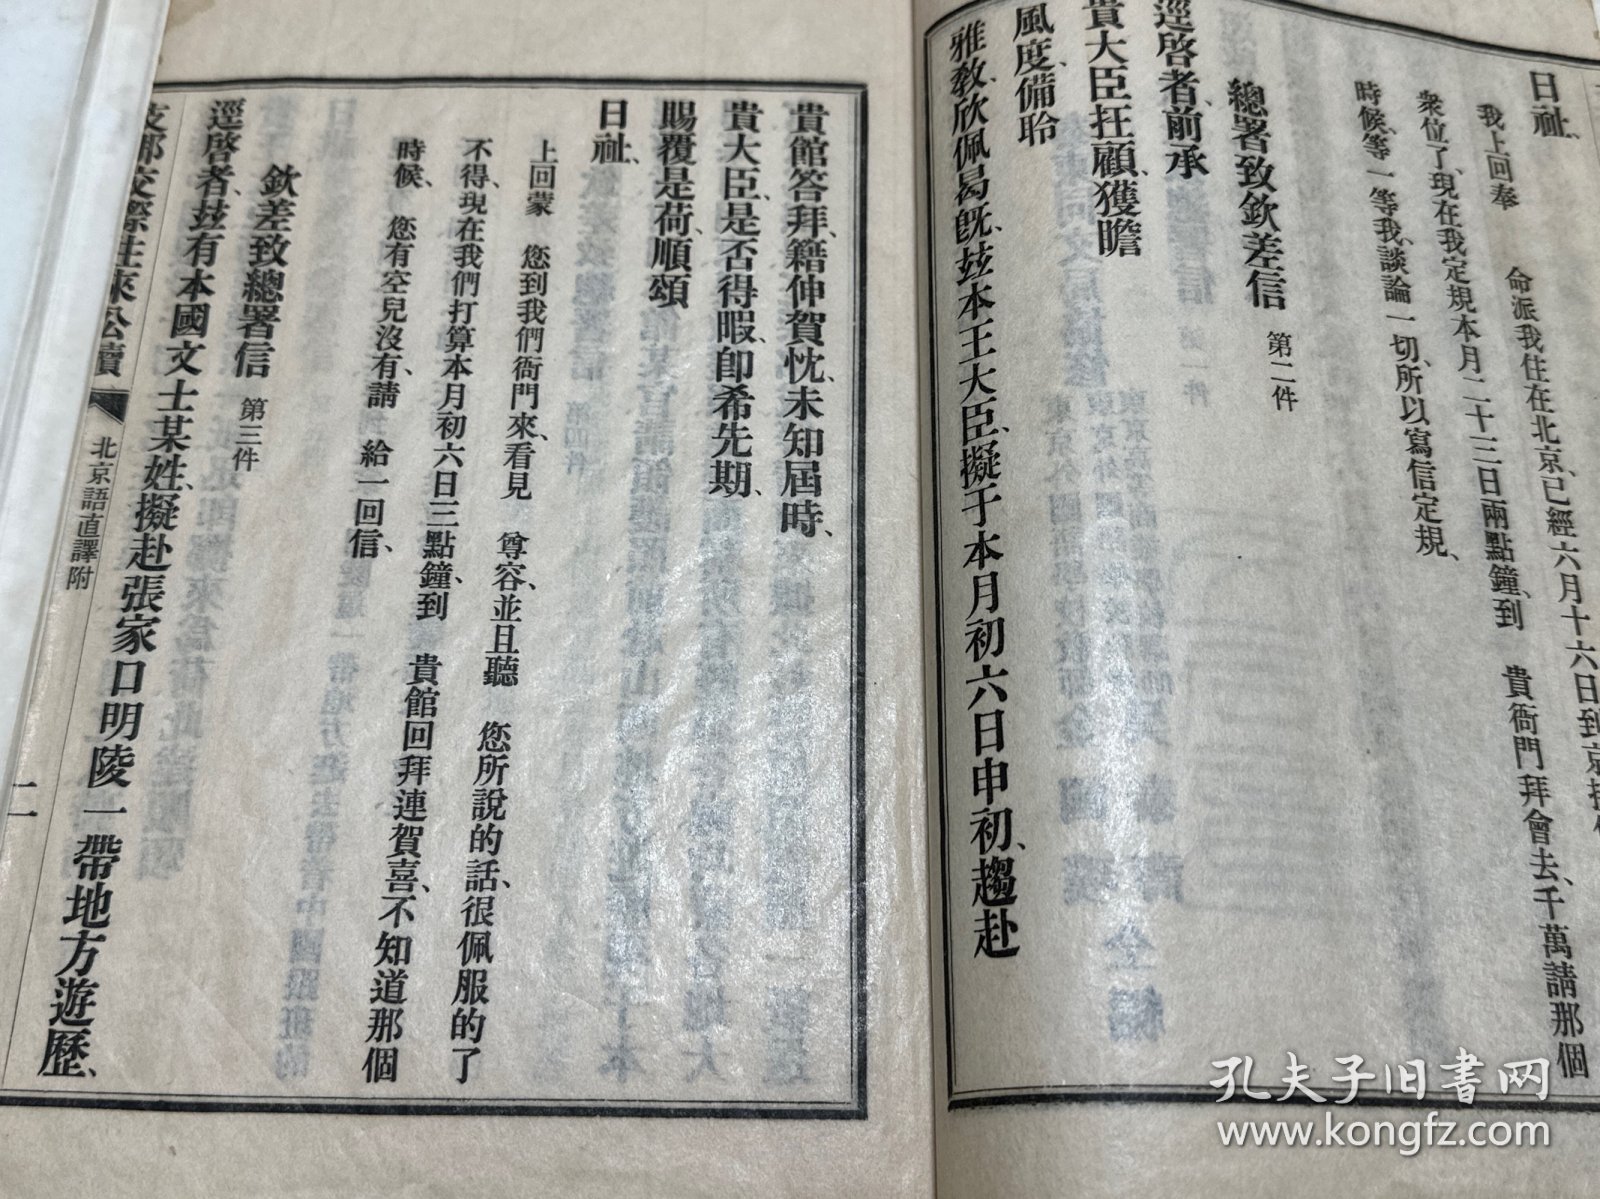 日祉、
我上回奉　命派我住在北京、已經六月十六日到京接
衆位了、現在我定規本月二十三日兩點鐘、到　貴衙門拜會去、千萬請那個
時候、等一等我、談論一切、所以寫信定規、
總署致欽差信　第二件
逕啓者、前承
貴大臣枉顧、獲瞻
風度、備聆
雅敎、欣佩曷旣、玆本王大臣、擬于本月初六日申初、趨赴
貴館答拜、籍伸賀忱、未知屆時、
貴大臣、是否得暇、卽希先期、
賜覆是荷、順頌
日祉、
上回蒙　您到我們衙門來、看見　尊容、並且聽　您所說的話、很佩服的了
不得、現在我們打算本月初六日三點鐘、到　貴館回拜連賀喜、不知道那個
時候、您有空兒沒有、請　給一回信、
欽差致總署信　第三件
逕啓者、玆有本國文士某姓、擬赴張家口明陵一帶地方遊歷、
支那交際往來公牘　北京語直譯附　二
孔夫子旧书网
www.kongfz.com